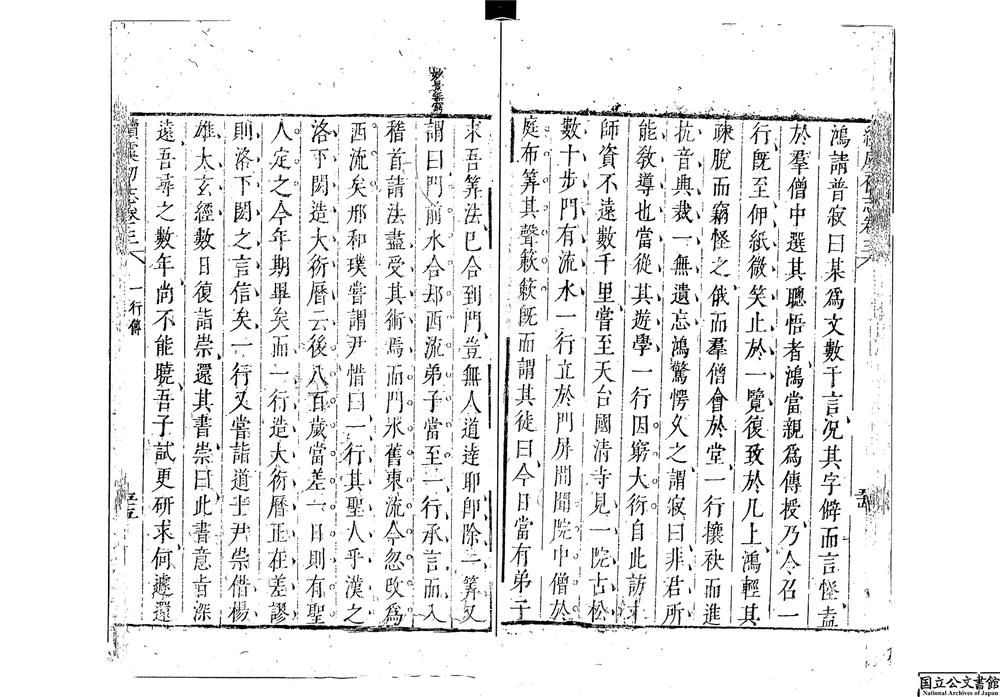 鴻請普寂曰某爲文數千言况其字僻而言怪盍
於羣僧中選其聰悟者鴻當親爲傳授乃令召一
行旣至伸紙微笑止於一覽復致於几上鴻輕其
疎脫而竊怪之俄而羣僧會於堂一行攘袂而進
抗音典裁一無遺忘鴻驚愕久之謂寂曰非君所
能敎導也當從其遊學一行因窮大衍自此訪求
師資不遠數千里嘗至天台國清寺見一院古松
數十步門有流水一行立於門屏間聞院中僧於
庭布筭其聲簌簌旣而謂其徒曰今日當有弟子
求吾筭法已合到門豈無人道達耶卽除一筭又
謂曰門前水合却西流弟子當至一行承言而入
稽首請法盡受其術焉而門水舊東流今忽改爲
西流矣邢和璞嘗謂尹愔曰一行其聖人乎漢之
洛下閎造大衍曆云後八百歲當差一日則有聖
人定之今年期畢矣而一行造大衍曆正在差謬
則洛下閎之言信矣一行又嘗詣道士尹崇借楊
雄太玄經數日復詣崇還其書崇曰此書意旨深
遠吾尋之數年尚不能曉吾子試更研求何遽還
續虞初志卷三
一行傳
五
国立公文書館
National Archives of Japan